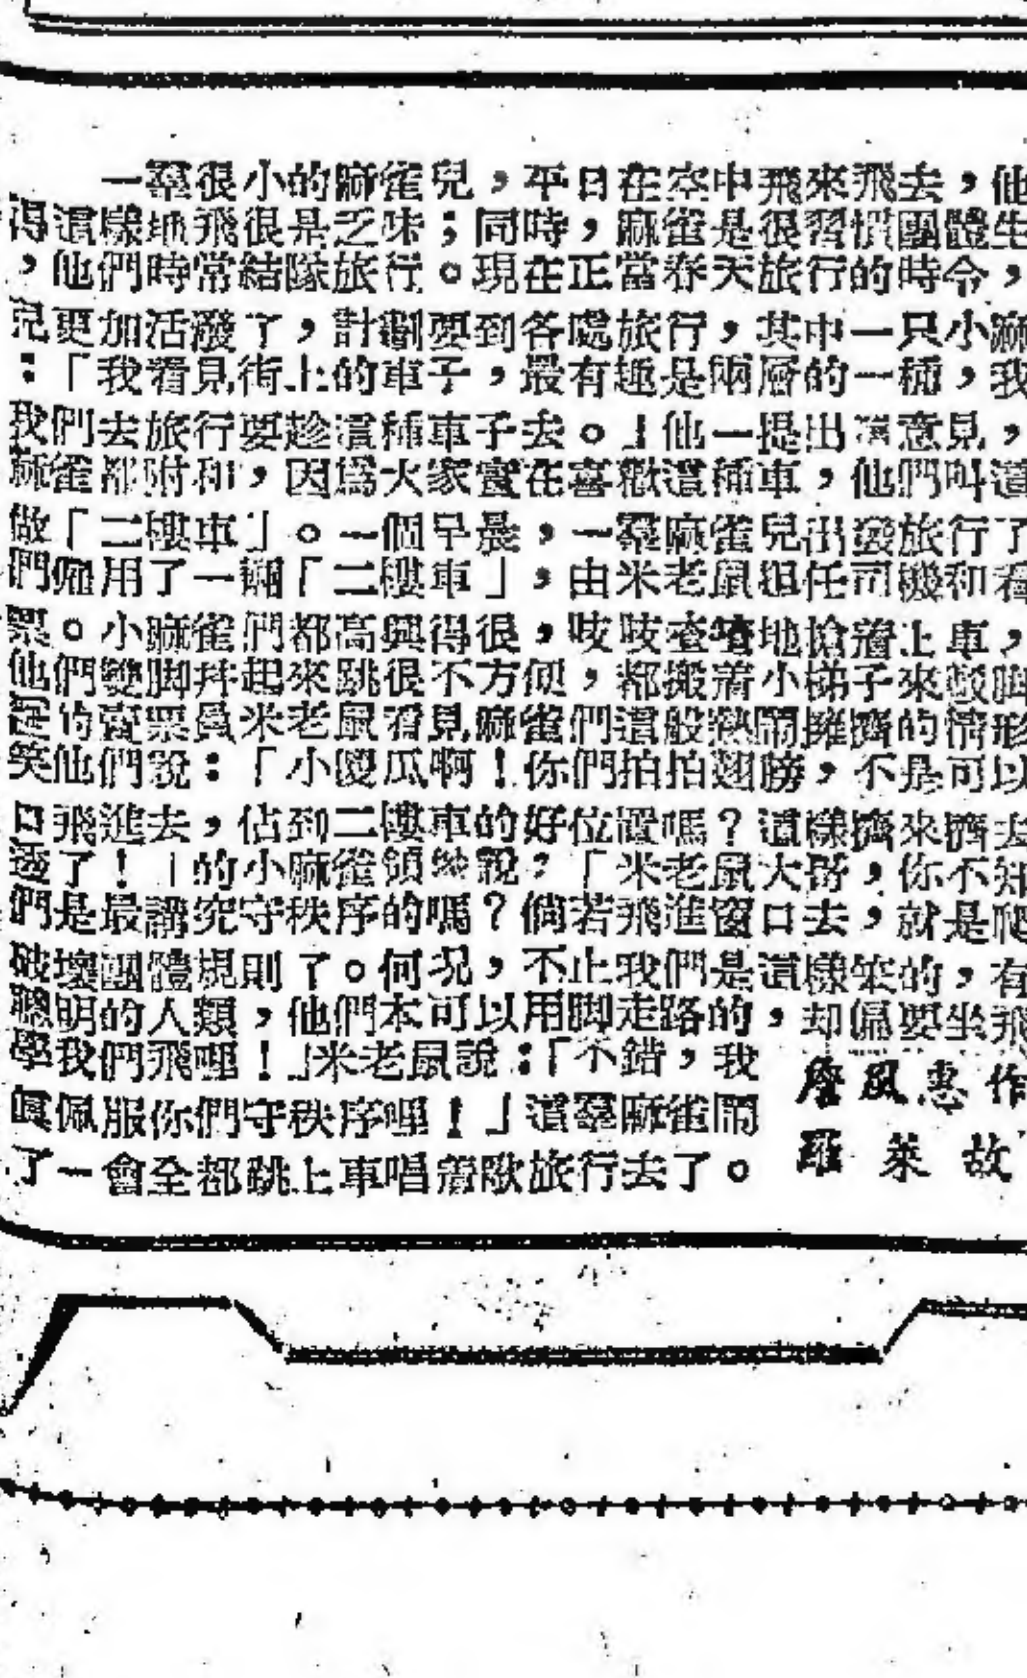 一羣很小的麻雀兒，平日在空中飛來飛去，他
得這樣地飛很是乏味；同時，麻雀是很習慣團體生
，他們時常結隊旅行。現在正當春天旅行的時令，
兒更加活潑了，計劃要到各處旅行，其中一只小麻
：「我看見街上的車子，最有趣是兩層的一種，我
我們去旅行要趁這種車子去。」他一提出意見，
麻雀都附和，因爲大家實在喜歡這種車，他們叫這
做「二樓車」。一個早晨，一羣麻雀兒出發旅行了
們僱用了一輛「二樓車」，由米老鼠担任司機和看
票。小麻雀們都高興得很，吱吱喳喳地搶着上車，
他們雙脚拼起來跳很不方便，都搬着小梯子來脚
的賣票員米老鼠看見麻雀們這般熱鬧擁擠的情形
笑他們說：「小傻瓜啊！你們拍拍翅膀，不是可以
口飛進去，佔到二樓車的好位置嗎？這樣擠來擠去
透了！」的小麻雀領說：「米老鼠大哥，你不知
們是最講究守秩序的嗎？倘若飛進窗口去，就是爬
破壞團體規則了。何况，不止我們是這樣笨的，有
聰明的人類，他們本可以用脚走路的，却偏要坐飛
學我們飛哩！」米老鼠說：「不錯，我
眞佩服你們守秩序哩！」這羣麻雀鬧
了一會全都跳上車唱着歌旅行去了。
詹風惠作
羅萊故